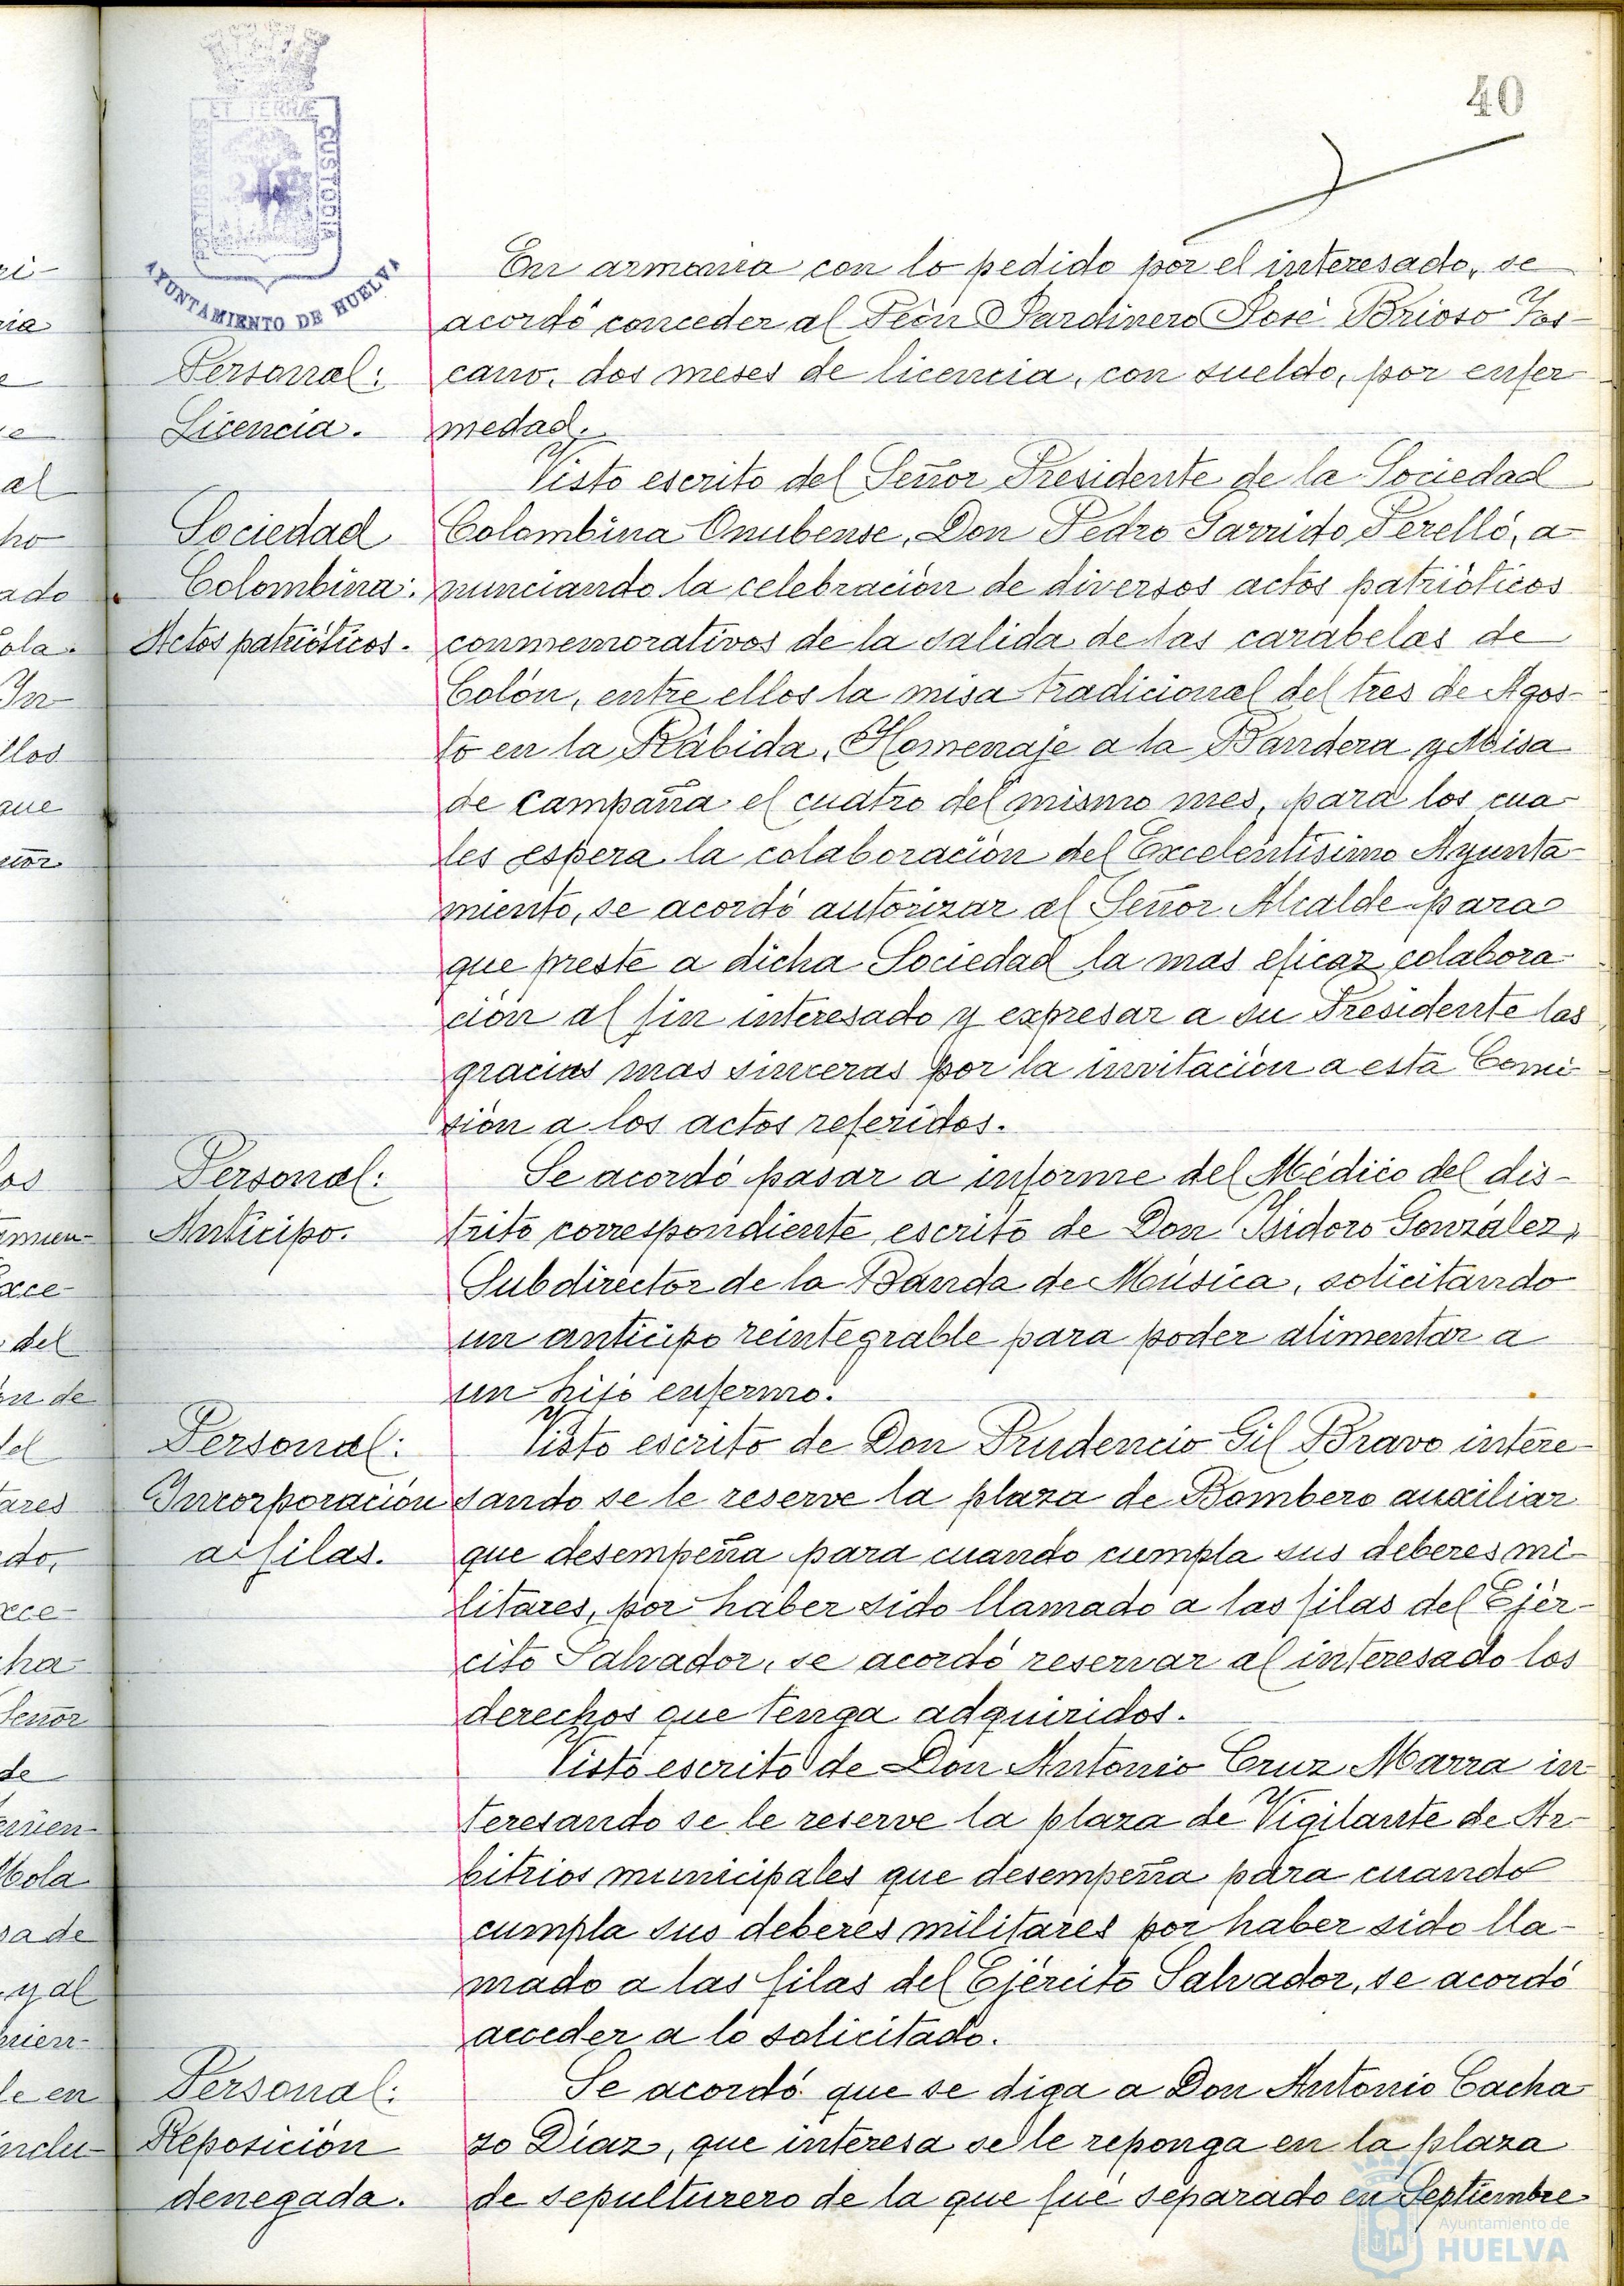 40
ET TERRÆ
CUSTODIA
AYUNTAMIENTO DE HUELVA
Personal:
Licencia.
En armonía con lo pedido por el interesado, se
acordó conceder al Peón Jardinero José Brioso Tos-
cano, dos meses de licencia, con sueldo, por enfer
medad.
Sociedad
Colombina:
Actos patrióticos.
Visto escrito del Señor Presidente de la Sociedad
Colombina Onubense, Don Pedro Garrido Perelló, a
nunciando la celebración de diversos actos patrióticos
conmemorativos de la salida de las carabelas de
Colón, entre ellos la misa tradicional del tres de Agos-
to en la Rábida, Homenaje a la Bandera y Misa
de campaña el cuatro del mismo mes, para los cua-
les espera la colaboración del Excelentísimo Ayunta-
miento, se acordó autorizar al Señor Alcalde para
que preste a dicha Sociedad la mas eficaz colabora-
ción al fin interesado y expresar a su Presidente las
gracias mas sinceras por la invitación a esta Comi-
sión a los actos referidos.
Personal:
Anticipo.
Se acordó pasar a informe del Médico del dis-
trito correspondiente, escrito de Don Isidoro González,
Subdirector de la Banda de Música, solicitando
un anticipo reintegrable para poder alimentar a
un hijo enfermo.
Personal:
Incorporación
a filas.
Visto escrito de Don Prudencio Gil Bravo intere-
sando se le reserve la plaza de Bombero auxiliar
que desempeña para cuando cumpla sus deberes mi-
litares, por haber sido llamado a las filas del Ejér-
cito Salvador, se acordó reservar al interesado los
derechos que tenga adquiridos.
Visto escrito de Don Antonio Cruz Marra in-
teresando se le reserve la plaza de Vigilante de Ar-
bitrios municipales que desempeña para cuando
cumpla sus deberes militares por haber sido lla-
mado a las filas del Ejército Salvador, se acordó
acceder a lo solicitado.
Personal:
Reposición
denegada.
Se acordó que se diga a Don Antonio Cacha
zo Díaz, que interesa se le reponga en la plaza
de sepulturero de la que fué separado en Septiembre
Ayuntamiento de
HUELVA